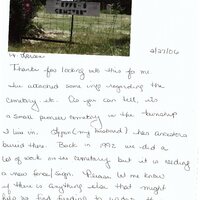 EPPS
CEMETERY
2/27/06
Thanks for looking into this for me.
I've attached some info regarding the
cemetery etc. As you can tell, it's
a small pioneer cemetery in the township
I live in. (my husband) has ancestors
buried there. Back in 1992 we did a
lot of work in the cemetery but it is needing
a new fence/sign. Please let me know
if there is anything else that might
help us find funding to update the